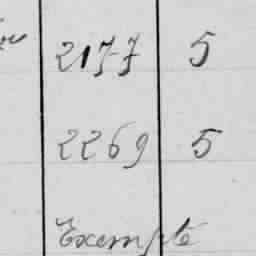 2177 5
2269 5
Exempte